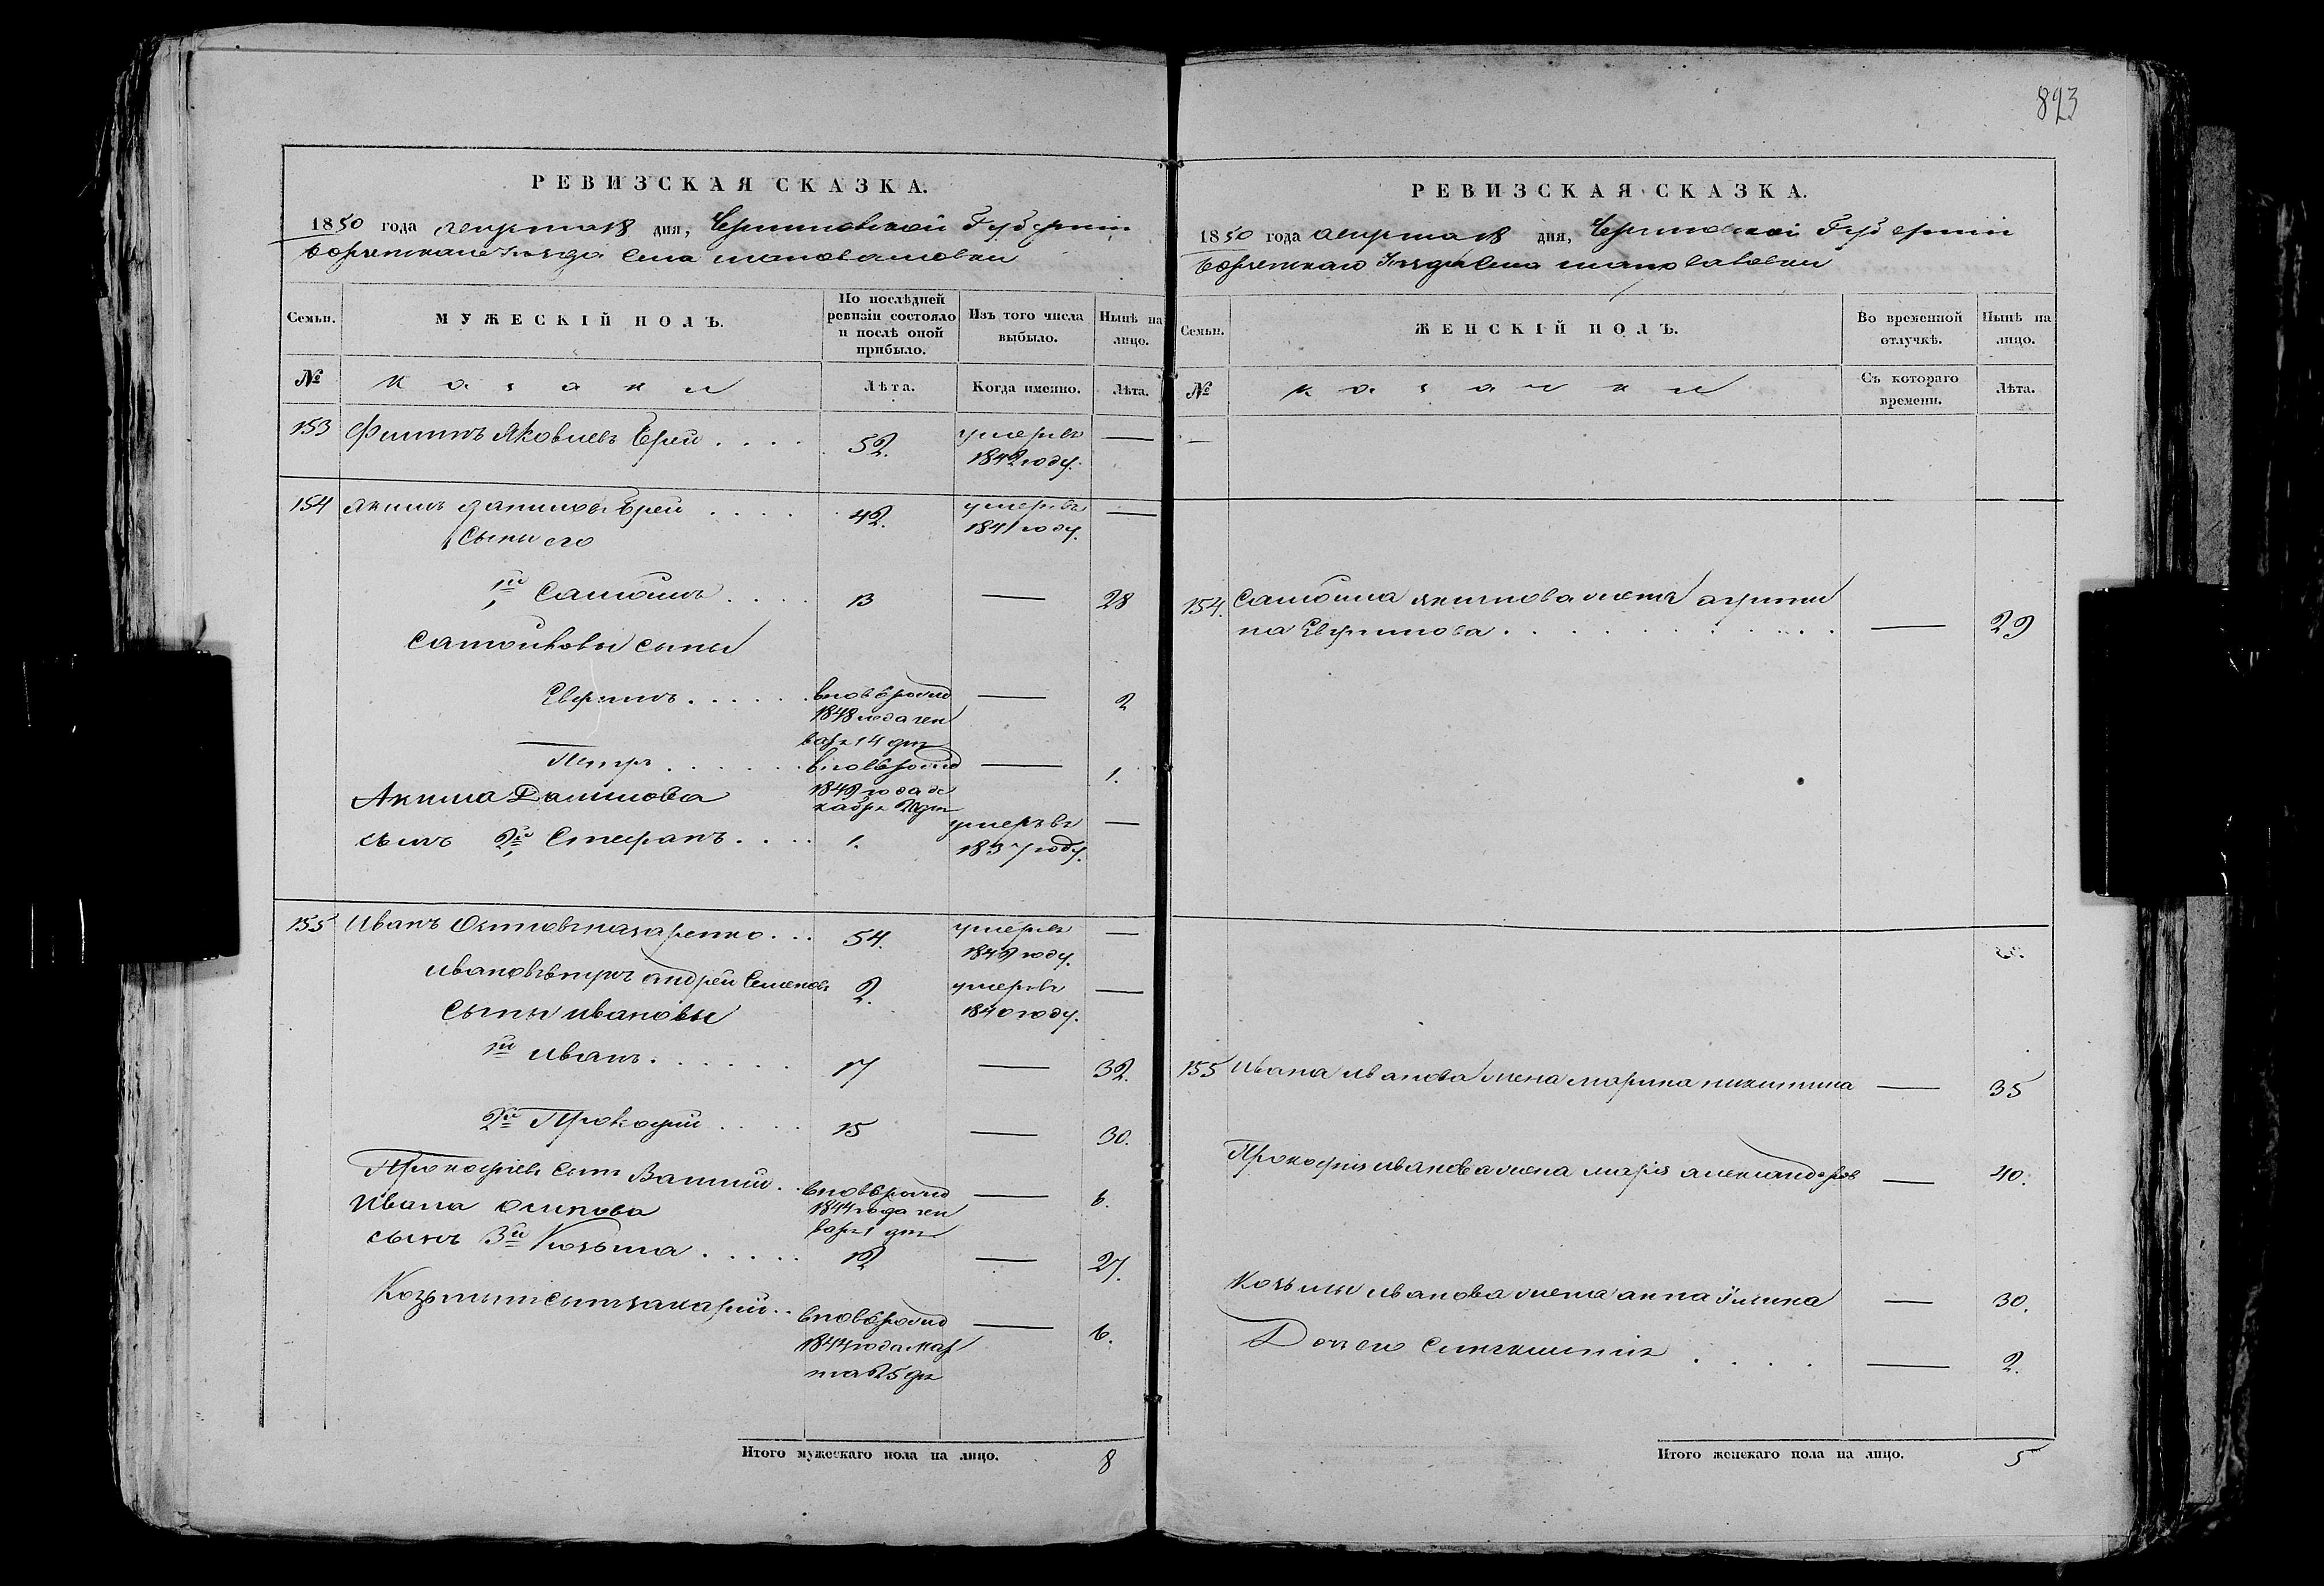 823
РЕВИЗСКАЯ СКАЗКА.
1850 года августа 18 дня, Черниговской Губернии
Борзенскаго Уезда села Шаповаловки
Семьи.
МУЖЕСКІЙ ПОЛЪ.
По послѣдней ревизіи состояло и послѣ оной прибыло.
Изъ того числа выбыло.
Нынѣ на лицо.
№
казаки
Лѣта.
Когда именно.
Лѣта.
153 Филипъ Яковлевъ Ерей 52. умеръ въ 1842 году. —
154 Акимъ Даниловъ Ерей 42. умеръ въ 1841 году. —
Сыны его
1й Самойло 13 — 28
Самойловы сыны
Евфимъ вновь рожд 1848 года ген варя 14 дня — 2
Петръ вновь рожд 1849 года де кабря дня — 1.
Акима Данилова
сынъ 2й Стефанъ 1. умеръ въ 1837 году. —
155 Иванъ Осиповъ Назаренко 54. умеръ 1849 году. —
Ивановъ внукъ Андрей Семеновъ 2. умеръ въ 1840 году. —
Сыны Ивановы
1й Иванъ 17 — 32.
2й Прокофий 15 — 30.
Прокофиевъ сынъ Василий вновь рожд 1844 года ген варя 1 дня — 6.
Ивана Осипова
сынъ 3й Козьма 12 — 27.
Козьминъ сынъ Захарий вновь рожд 1844 года мар та 25 дня — 6.
Итого мужескаго пола на лицо. 8
РЕВИЗСКАЯ СКАЗКА.
1850 года августа 18 дня, Черниговской Губернии
Борзенскаго Уезда села Шаповаловки
Семьи.
ЖЕНСКІЙ ПОЛЪ.
Во временной отлучкѣ.
Нынѣ на лицо.
№
казачки
Съ котораго времени.
Лѣта.
154. Самойла Акимова жена Агрипи
на Евфимова — 29
155 Ивана Иванова жена Марина Никитина — 35
Прокофия Иванова жена Мария Александрова — 40.
Козьмы Иванова жена Анна Ильина — 30.
Дочь его — 2.
Итого женскаго пола на лицо. 5